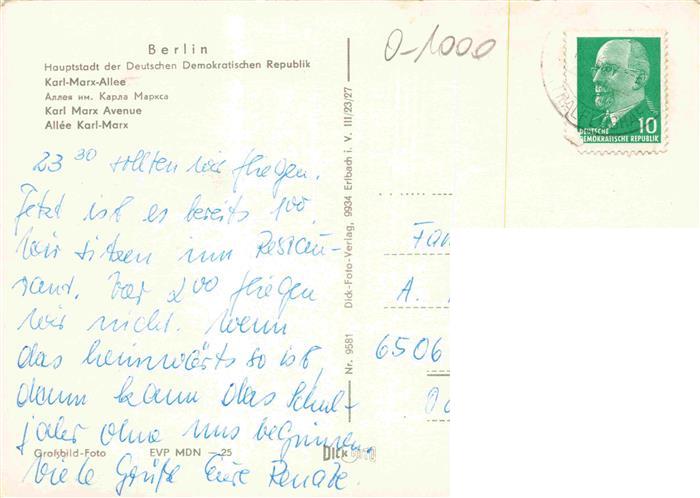 Berlin
Hauptstadt der Deutschen Demokratischen Republik
Karl-Marx-Allee
Аллея им. Карла Маркса
Karl Marx Avenue
Allée Karl-Marx
0-1000
DEUTSCHE
DEMOKRATISCHE REPUBLIK
10
23 30 sollten wir fliegen.
Jetzt ist es bereits 100.
Wir sitzen im Restau-
rant. Vor 200 fliegen
wir nicht. Wenn
das heimwärts so ist,
dann kann das Schul-
jahr ohne uns beginnen.
Viele Grüße Eure Renate.
Großbild-Foto EVP MDN —25
Nr. 9581 Dick-Foto-Verlag, 9934 Erlbach i. V. III/23/27
Dick
FOTO
Fam
A.
6506